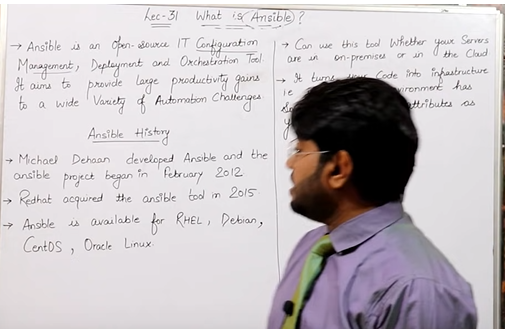 Lec-31 What is Ansible?
→ Ansible is an Open-Source IT Configuration
Management, Deployment and Orchestration Tool.
It aims to provide large productivity gains
to a wide Variety of Automation Challenges.
Ansible History
→ Michael Dehaan developed Ansible and the
ansible project began in February 2012
→ Redhat acquired the ansible tool in 2015
→ Ansible is available for RHEL, Debian,
CentOS, Oracle Linux.
→ Can use this tool Whether your Servers
are in on-premises or in the Cloud
→ It turns your Code into Infrastructure
i.e has
attributes as